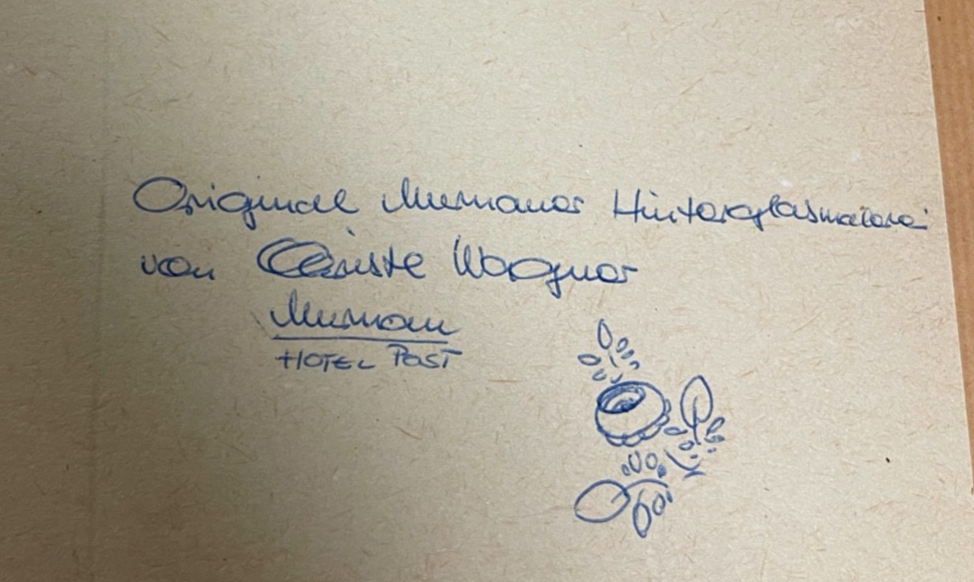 Original Murnauer Hinterglasmalerei
von Christe Wagner
Murnau
HOTEL POST